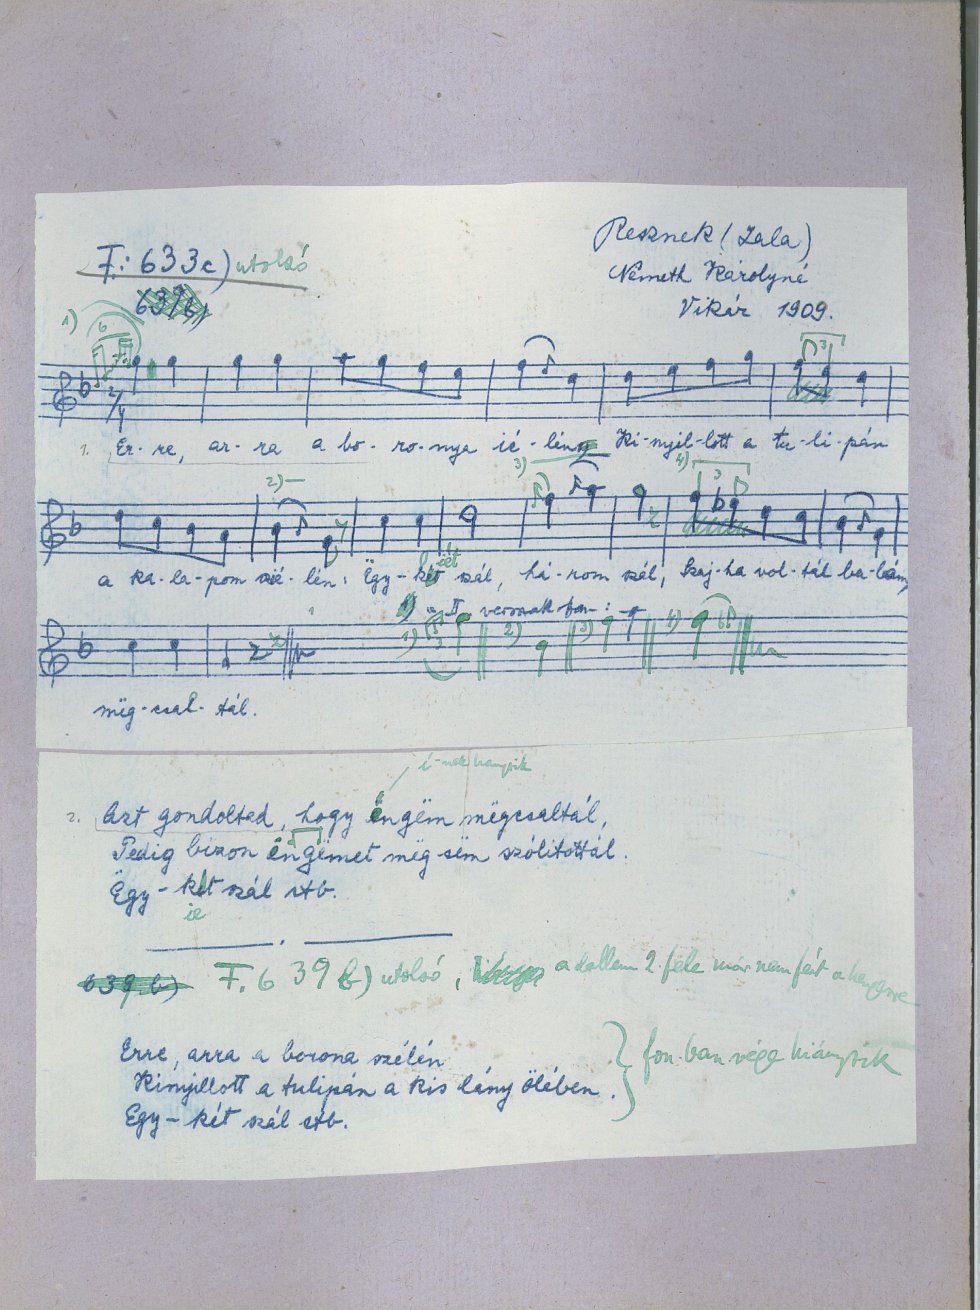 F.: 633c) utolsó
Resznek (Zala)
Németh Károlyné
639b)
Vikár 1909.
1)
6
3
2/4
1. Er-re, ar-ra a bo-ro-nya szé-lén Ki-nyil-lott a tu-li-pán
2) 3) 4)
3
a ka-la-pom szé-lén: Ëgy-két szál, há-rom szál, Szaj-ha vol-tál ba-bám,
II versszakban:
1) 2) 3) 4)
3
mëg-csal-tál.
i-nek hangzik
2. Azt gondoltad, hogy éngëm mëgcsaltál,
Pedig bizon éngëmet mëg sëm szólitottál.
Ëgy-két szál stb.
ié
639.b) F. 639 b) utolsó, a dallam 2. fele már nem fért a hengerre
Erre, arra a borona szélén
Kinyillott a tulipán a kis lány ölében.
Egy-két szál stb.
fon.ban vége hiányzik